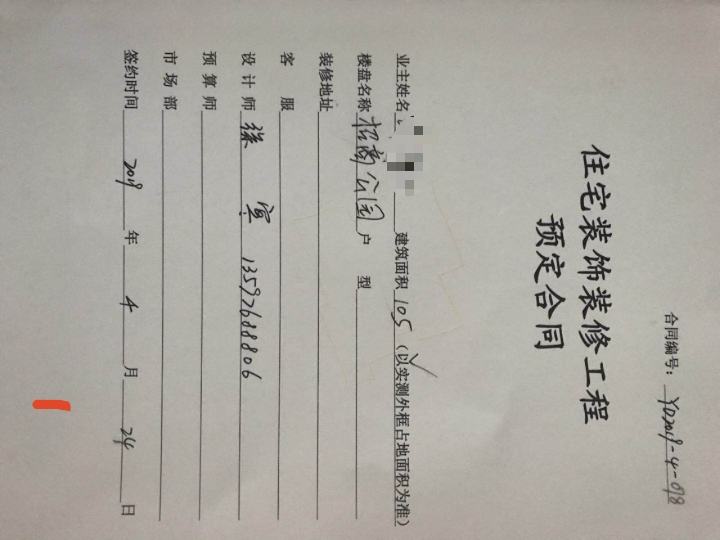 合同编号：YD2019-4-098
住宅装饰装修工程
预定合同
业主姓名 建筑面积 105 （以实测外框占地面积为准）
楼盘名称 招商公园 户 型
装修地址
客 服
设计师 徐 寅 13597688806
预算师
市场部
签约时间 2019 年 4 月 24 日